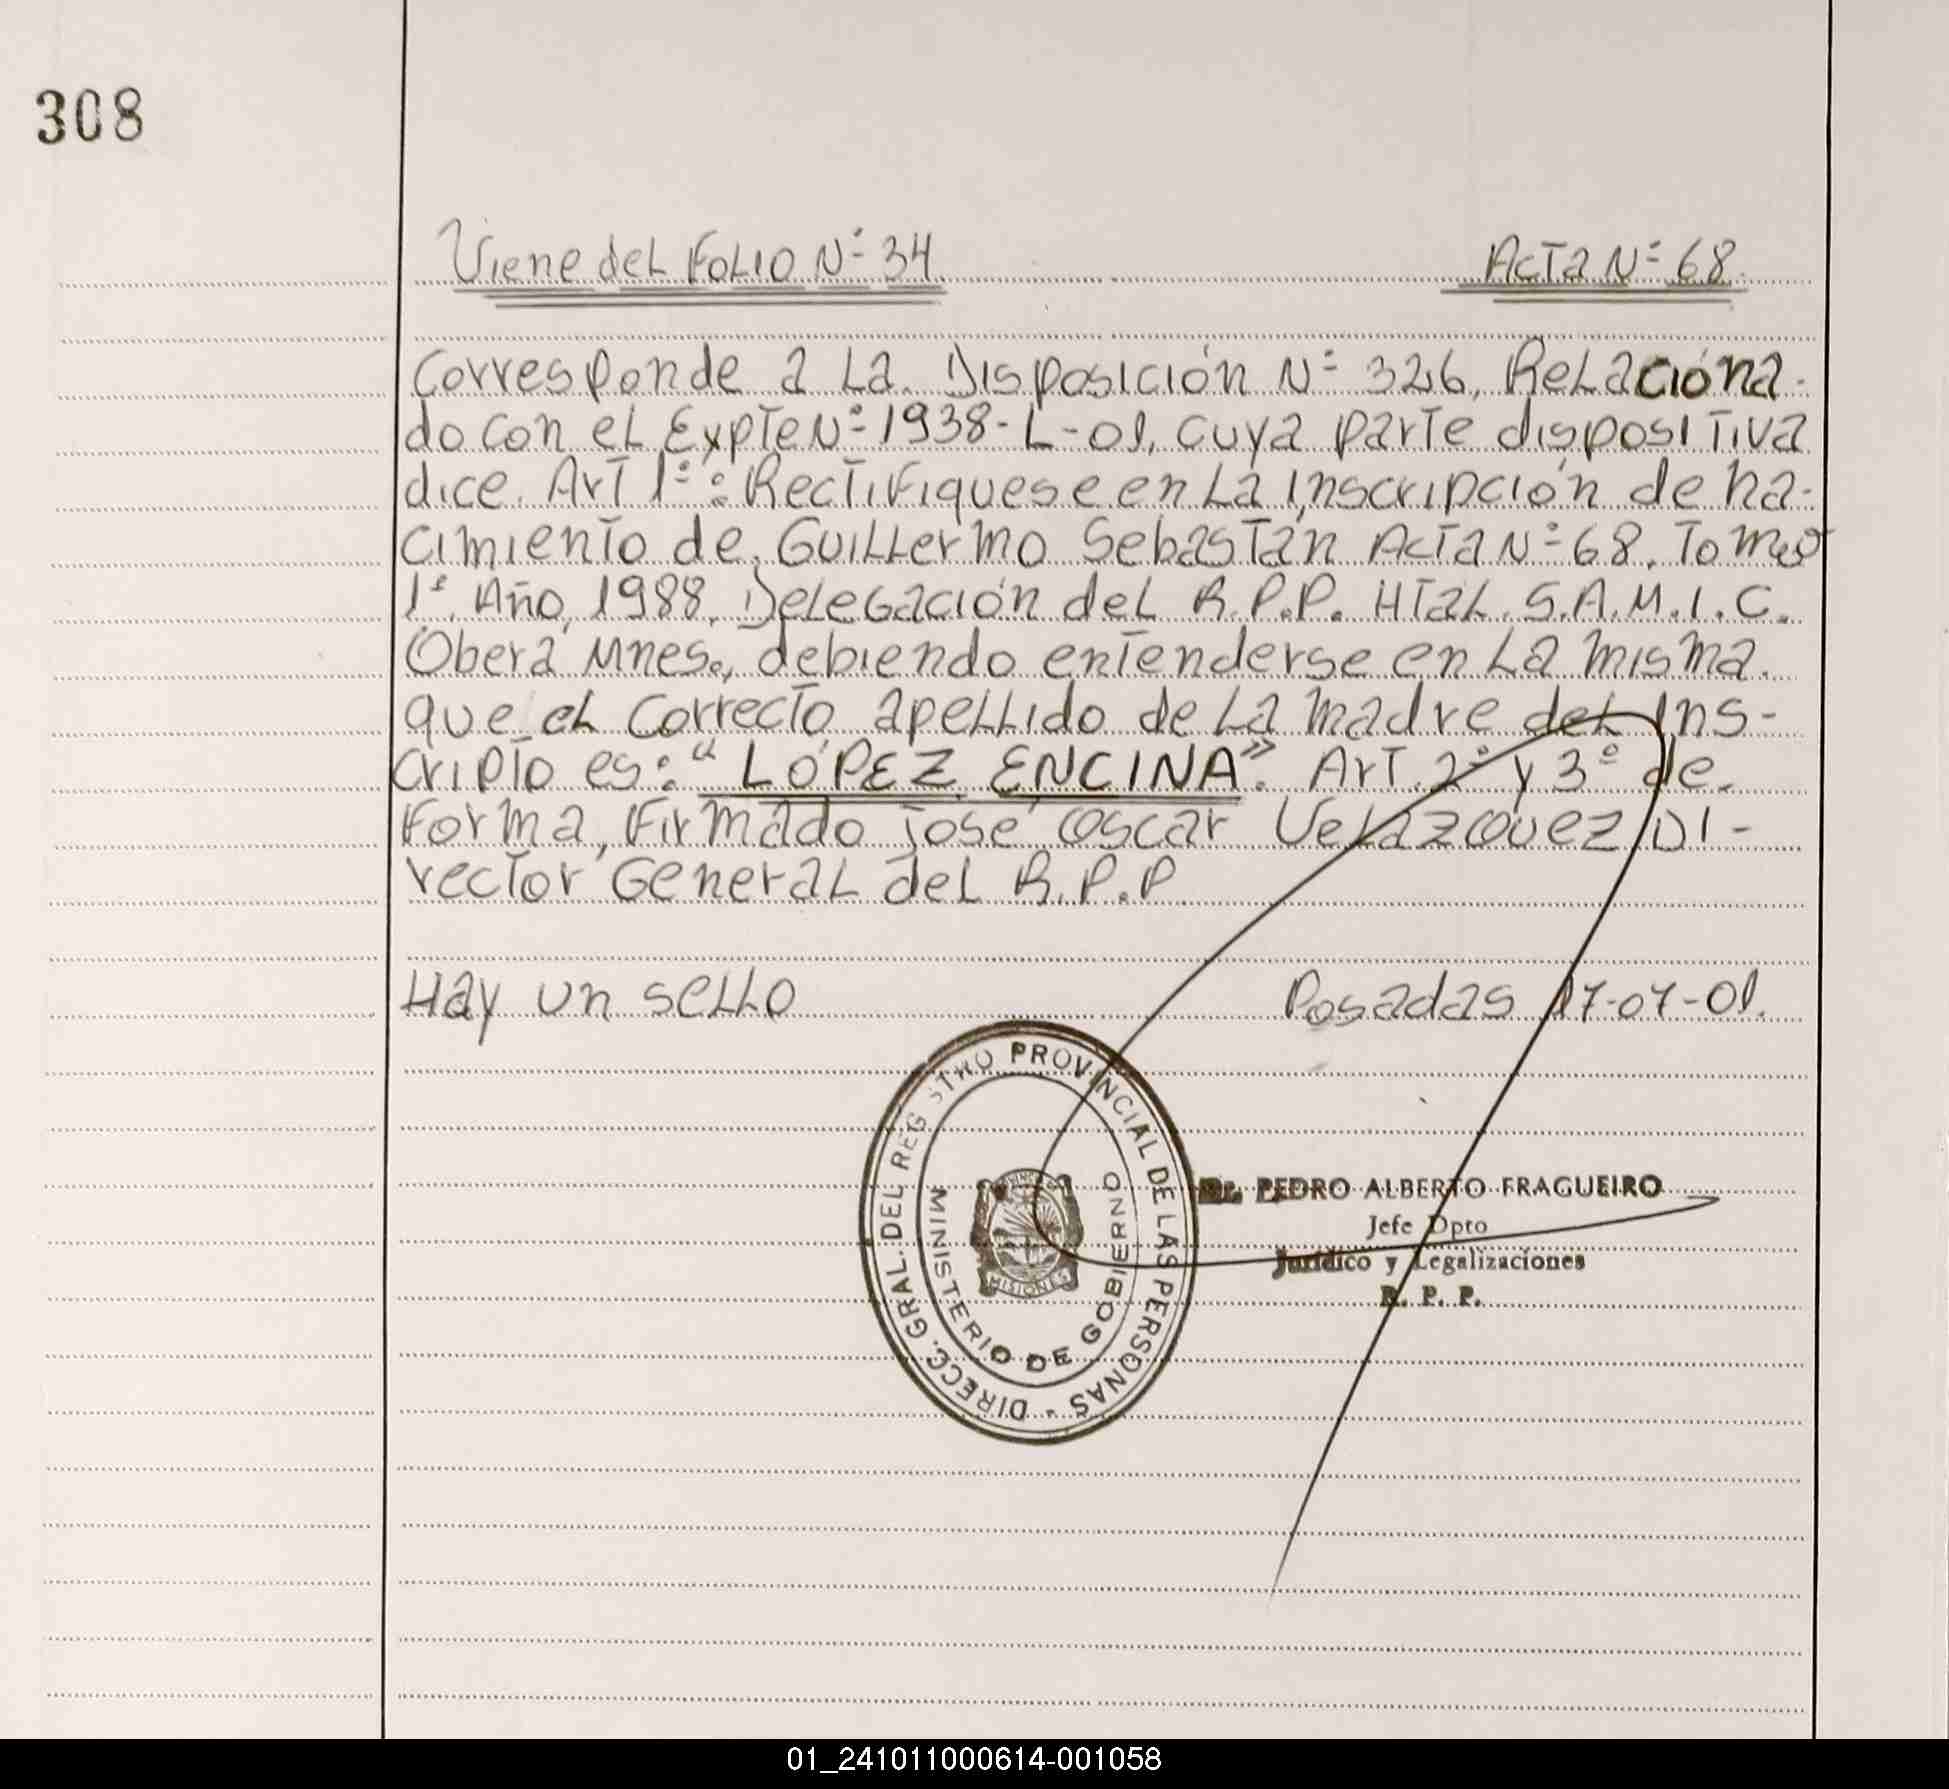 308
Viene del Folio Nº 34
Acta Nº 68.
Corresponde a la Disposición Nº 326, Relaciona-
do con el Expte Nº 1938-L-01, cuya parte dispositiva
dice. Art 1º: Rectifiquese en la inscripción de na-
cimiento de Guillermo Sebastán Acta Nº 68. Tomo
1º. Año 1988. Delegación del R.P.P. Htal. S.A.M.I.C.
Oberá Mnes., debiendo entenderse en la misma
que el correcto apellido de la madre del ins-
cripto es: "LÓPEZ ENCINA". Art. 2º y 3º de
forma, Firmado José Oscar Velazquez Di-
rector General del R.P.P
Hay un sello
Posadas 17-07-01.
DIRECC. GRAL. DEL REGISTRO PROVINCIAL DE LAS PERSONAS -
MINISTERIO DE GOBIERNO
MISIONES
Dr. PEDRO ALBERTO FRAGUEIRO
Jefe Dpto
Jurídico y Legalizaciones
R. P. P.
01_241011000614-001058